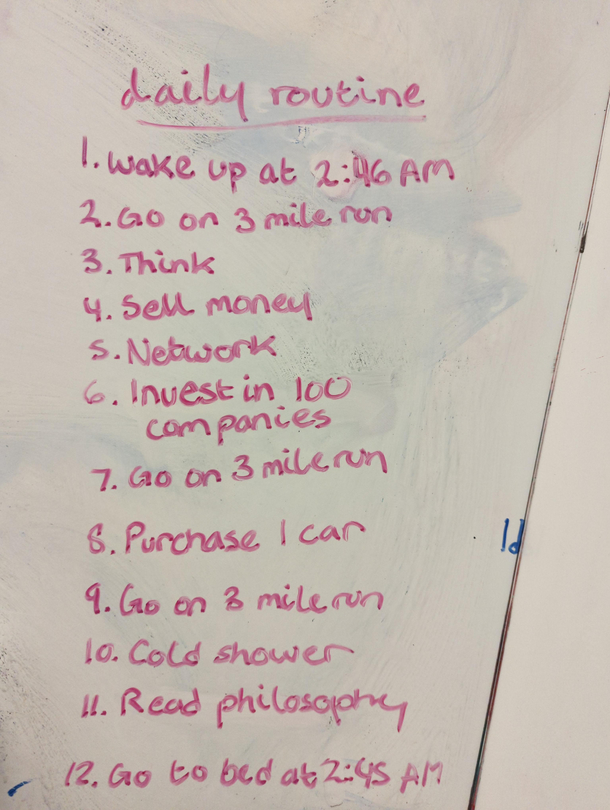 daily routine
1. Wake up at 2:46 AM
2. Go on 3 mile run
3. Think
4. Sell money
5. Network
6. Invest in 100
companies
7. Go on 3 mile run
8. Purchase 1 car
9. Go on 3 mile run
10. Cold shower
11. Read philosophy
12. Go to bed at 2:45 AM